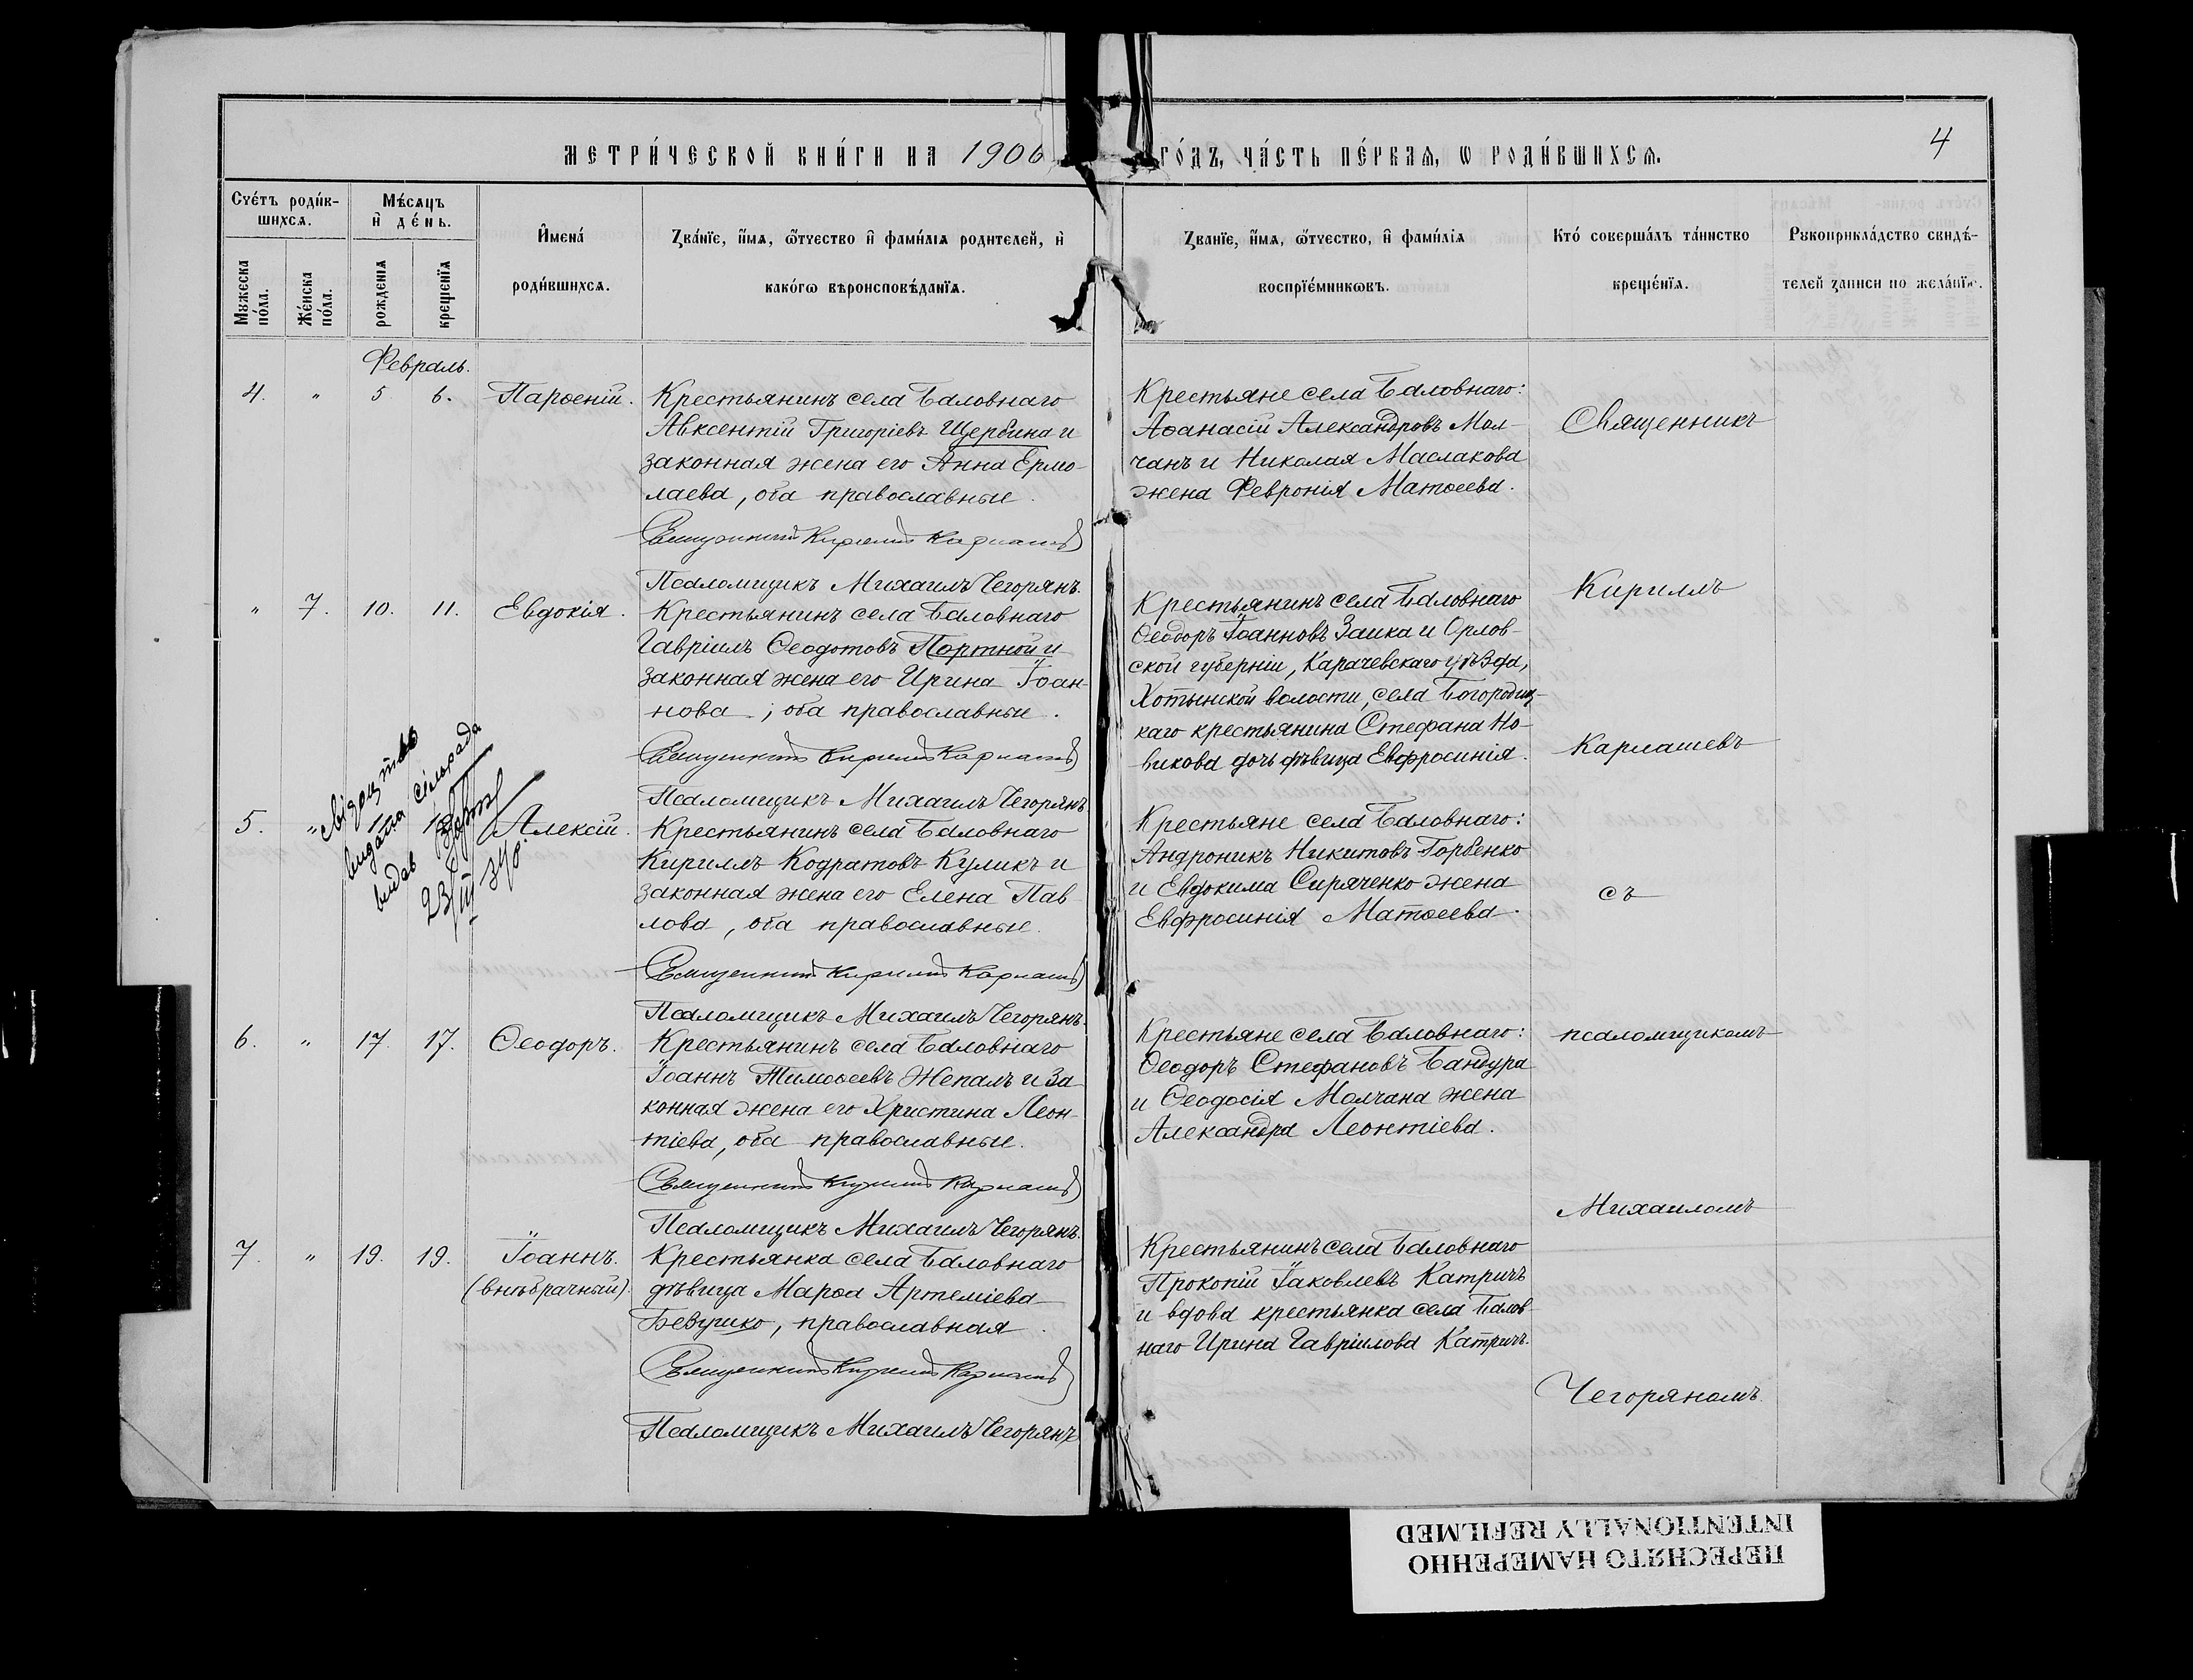 МЕТРИ́ЧЕСКОЙ КНИ́ГИ НА 1906 ГО́ДЪ, ЧА́СТЬ ПЕ́РВАѦ, Ѡ РОДИ́ВШИХСѦ.
4
Счéтъ роди́в-
шихсѧ.
Мѣ́сѧцъ
и҆ де́нь.
И҆мена́
роди́вшихсѧ.
Зва́нїе, и҆́мѧ, ѻ҆́тчество и҆ фами́лїѧ родителей, и҆
како́гѡ вѣроисповѣ́данїѧ.
Зва́нїе, и҆́мѧ, ѻ҆́тчество, и҆ фами́лїѧ
воспрїе́мникѡвъ.
Кто́ соверша́лъ та́инство
креще́нїѧ.
Рꙋкоприкла́дство свидѣ́-
телей записи по жела́нїю.
Мꙋжеска
по́ла.
Же́нска
по́ла.
рожденїѧ
крещенїѧ
Февраль.
4. " 5 6. Парѳеній.
Крестьянинъ села Баловнаго
Авксентій Григоріевъ Щербина и
законная жена его Анна Ермо-
лаева, оба православные.
Священникъ Кириллъ Карлашевъ
Псаломщикъ Михаилъ Чегорянъ.
Крестьяне села Баловнаго:
Аѳанасій Александровъ Мол-
чанъ и Николая Маслакова
жена Февронія Матѳеева.
Священникъ
" 7. 10. 11. Евдокія.
Крестьянинъ села Баловнаго
Гавріилъ Ѳеодотовъ Портной и
законная жена его Ирина Іоан-
нова; оба православные.
Священникъ Кириллъ Карлашевъ
Псаломщикъ Михаилъ Чегорянъ
Крестьянинъ села Баловнаго
Ѳеодоръ Іоанновъ Заика и Орлов-
ской губерніи, Карачевскаго уѣзда,
Хотынской волости, села Богородиц-
каго крестьянина Стефана Но-
викова дочь дѣвица Евфросинія.
Кириллъ
Карлашевъ
свідоцтво
видала сільрада
видав
23/III
5. " Алексій.
Крестьянинъ села Баловнаго
Кириллъ Кодратовъ Куликъ и
законная жена его Елена Пав-
лова, оба православные.
Священникъ Кириллъ Карлашевъ
Псаломщикъ Михаилъ Чегорянъ.
Крестьяне села Баловнаго:
Андроникъ Никитовъ Горбенко
и Евдокима Сиряченко жена
Евфросинія Матѳеева.
съ
6. " 17. 17. Ѳеодоръ.
Крестьянинъ села Баловнаго
Іоаннъ Тимоѳеевъ Жепалъ и за
конная жена его Христина Леон-
тіева, оба православные.
Священникъ Кириллъ Карлашевъ
Псаломщикъ Михаилъ Чегорянъ.
Крестьяне села Баловнаго:
Ѳеодоръ Стефановъ Бандура
и Ѳеодосія Молчана жена
Александра Леонтіева.
псаломщикомъ
Михаиломъ
7. " 19. 19. Іоаннъ.
(внѣбрачный).
Крестьянка села Баловнаго
дѣвица Марѳа Артеміева
Безушко, православная.
Священникъ Кириллъ Карлашевъ
Псаломщикъ Михаилъ Чегорянъ
Крестьянинъ села Баловнаго
Прокопій Іаковлевъ Катричъ
и вдова крестьянка села Балов-
наго Ирина Гавріилова Катричъ.
Чегоряномъ.
ПЕРЕСНЯТО НАМЕРЕННО
INTENTIONALLY REFILMED